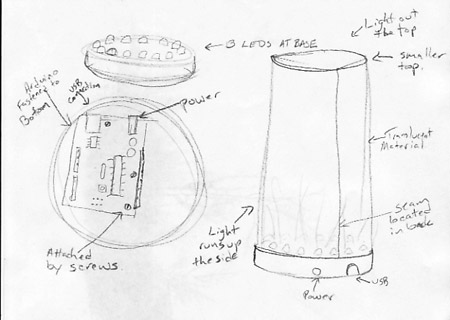 Light out
the top
3 LEDS AT BASE
smaller
top.
Arduino
Fastened to
Bottom
USB
connection
power
Translucent
Material
seam
located
in back
Light
runs up
the side
Attached
by screws.
Power
USB